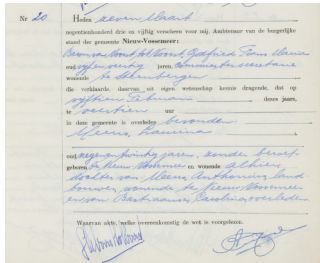 Nr 20 Heden zeven Maart
negentienhonderd drie en vijftig verscheen voor mij, Ambtenaar van de burgerlijke
stand der gemeente Nieuw-Vossemeer:
oud vijfenveertig jaren, gemeentesecretaris
wonende te Steenbergen
die verklaarde, daarvan uit eigen wetenschap kennis dragende, dat op
vijftien Februari dezes jaars,
te veertien uur
in deze gemeente is overleden bevonden
Meeus, Laurina
oud negenentwintig jaren, zonder beroep
geboren te Nieuw Vossemeer en wonende alhier
dochter van Meeus, Anthonius, land
bouwer, wonende te Nieuw Vossemeer
en van Bastiaansen, Carolina, overleden
Waarvan akte, welke overeenkomstig de wet is voorgelezen.